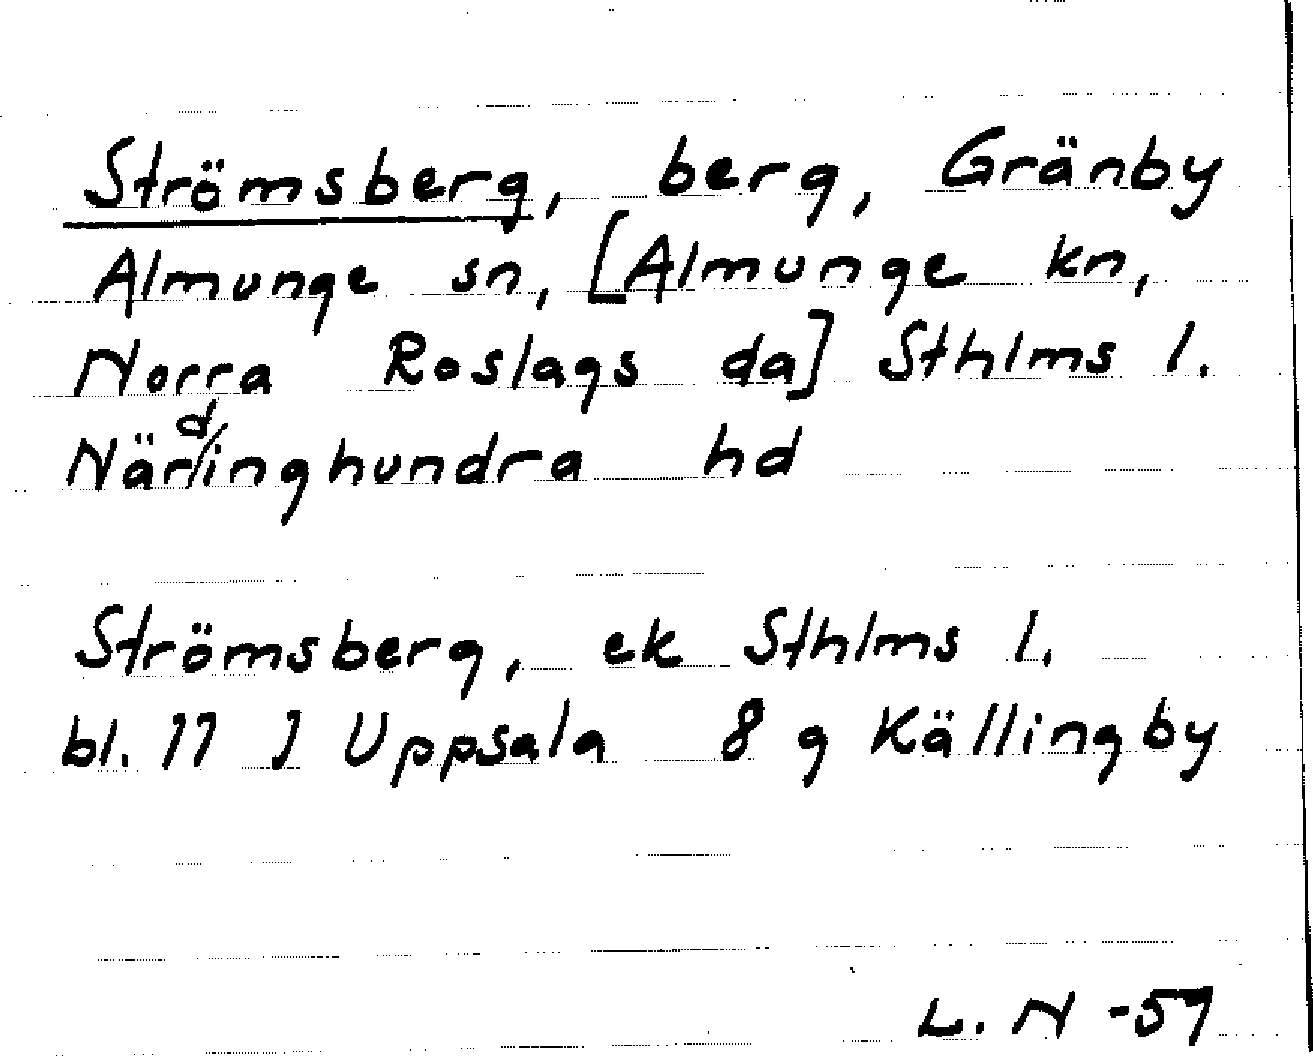 Strömsberg, berg, Gränby
Almunge sn, [Almunge kn,
Norra Roslags da] Sthlms l.
Närdinghundra hd
Strömsberg, ek Sthlms l.
bl. 11 J Uppsala 8 g Källingby
L. N -57